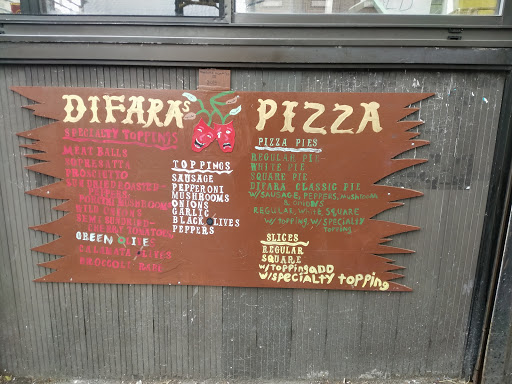 DIFARA'S PIZZA
SPECIALTY TOPPINGS
MEAT BALLS
SOPRESATTA
PROSCIUTTO
PEPPERS
PORCINI MUSHROOMS
CHERRY TOMATOES
GREEN OLIVES
OLIVES
BROCCOLI RABE
TOPPINGS
SAUSAGE
PEPPERONI
MUSHROOMS
ONIONS
GARLIC
BLACK OLIVES
PEPPERS
PIZZA PIES
REGULAR PIE
WHITE PIE
SQUARE PIE
DIFARA CLASSIC PIE
W/SAUSAGE, PEPPERS, MUSHROOM
& ONIONS
REGULAR, WHITE SQUARE
W/TOPPING, W/SPECIALTY
TOPPING
SLICES
REGULAR
SQUARE
W/TOPPING ADD
W/SPECIALTY TOPPING